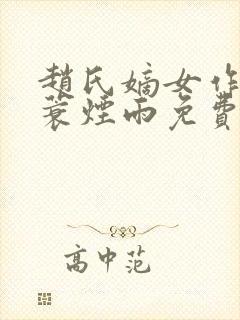 趙氏嫡女作
蓑煙雨免費
高中范